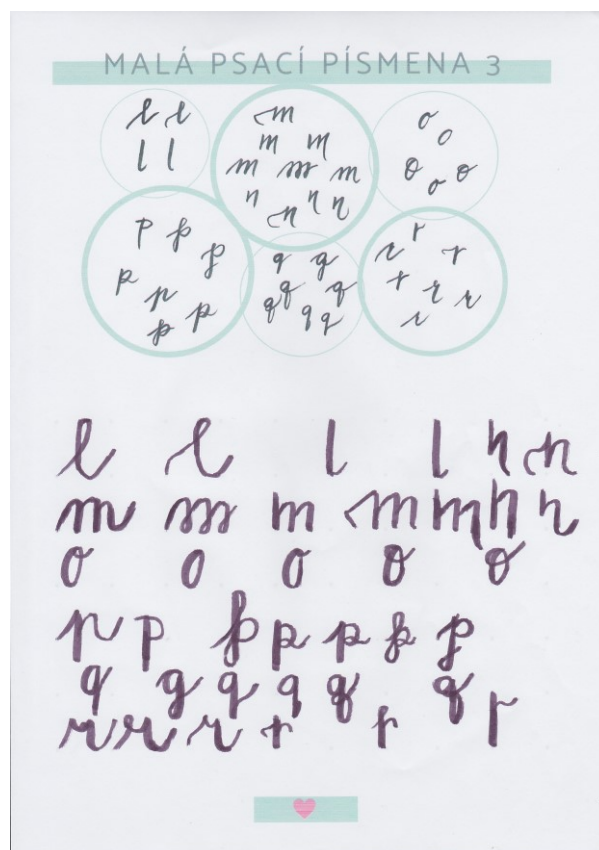 MALÁ PSACÍ PÍSMENA 3
l l
l l
m
m m
m m m
n n n
n
o
o
o o
o
p p p
p p
p p
q q
q q q
q q
r
r r
r r r
r
l l l l n n
m m m m m n n
o o o o o
p p p p p p p
q q q q q q
r r r r r r